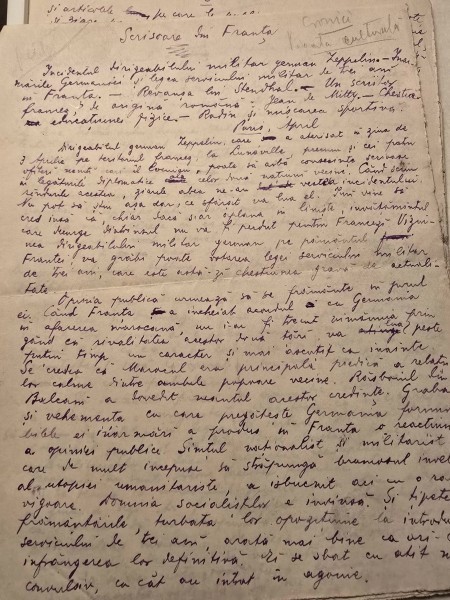 și articolele pe care le
Cronici
Viața culturală
Scrisoare din Franța
Incidentul dirigeabilului militar german Zeppelin. – Înar-
mările germane și legea serviciului militar de trei ani
în Franța. – Revanșa lui Stendhal. – Un scriitor
francez de origină română – Jean de Mitty. – Chestia
educațiunei fizice. – Rodin și mișcarea sportivă.
Paris, April
Dirigeabilul german Zeppelin, care a aterisat în ziua de
3 Aprilie pe teritoriul francez, la Lunéville precum și cei patru
ofițeri nemți cari îl poate să aibă consecințe serioase
în legăturile diplomatice celor două națiuni vecine. Când scriu
rândurile acestea, ziarele abea ne-au vestea incidentului
Nu pot să știu așa dar, ce sfârșit va lua el. Îmi vine să
cred însă că, chiar dacă s'ar aplana în liniște, învățământul
care decurge dintrînsul nu va fi perdut pentru Francezi. Viziu-
nea dirigeabilului militar german, pe pământul
Franței va grăbi poate votarea legei serviciului militar
de trei ani, care este astă-zi chestiunea gravă de actuali-
tate.
Opinia publică urmează să se frământe în jurul
ei. Când Franța a încheiat acordul cu Germania
în afacerea marocană, nu i-ar fi trecut nimănui prin
gând că rivalitatea acestor două țări va lua, peste
puțin timp, un caracter și mai ascuțit ca înainte.
Se credea că Marocul era principala piedică a relații
lor calme dintre ambele popoare vecine. Răsboiul din
Balcani a dovedit neantul acestor credințe. Graba
și vehemența cu care pregătește Germania formi-
bilele ei înarmări a produs în Franța o reacțiune
a opiniei publice. Simțul naționalist și militarist
care de mult începuse să străpungă învel
al utopiei umanitariste, a isbucnit aci cu o
vigoare. Domnia socialiștilor e învinsă. Și țipete
frământările, turbata lor opozițiune la introdu
serviciului de trei ani, arată mai bine ca ori-c
înfrângerea lor definitivă. Ei se sbat cu atît m
convulsiv, cu cât au intrat în agonie.